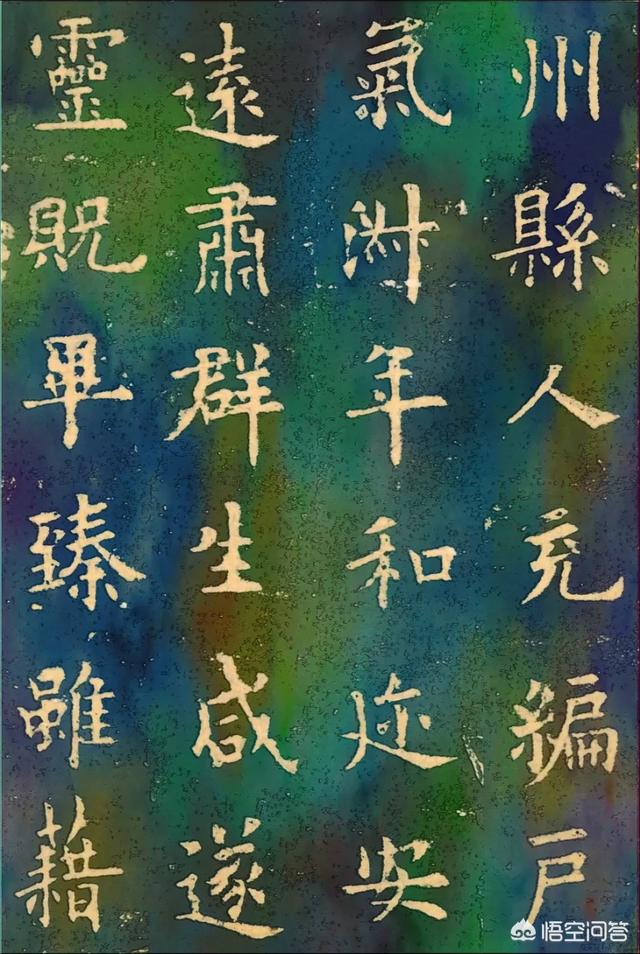 州縣人充編戶
氣淑年和迩安
遠肅群生咸遂
靈貺畢臻雖藉
悟空问答